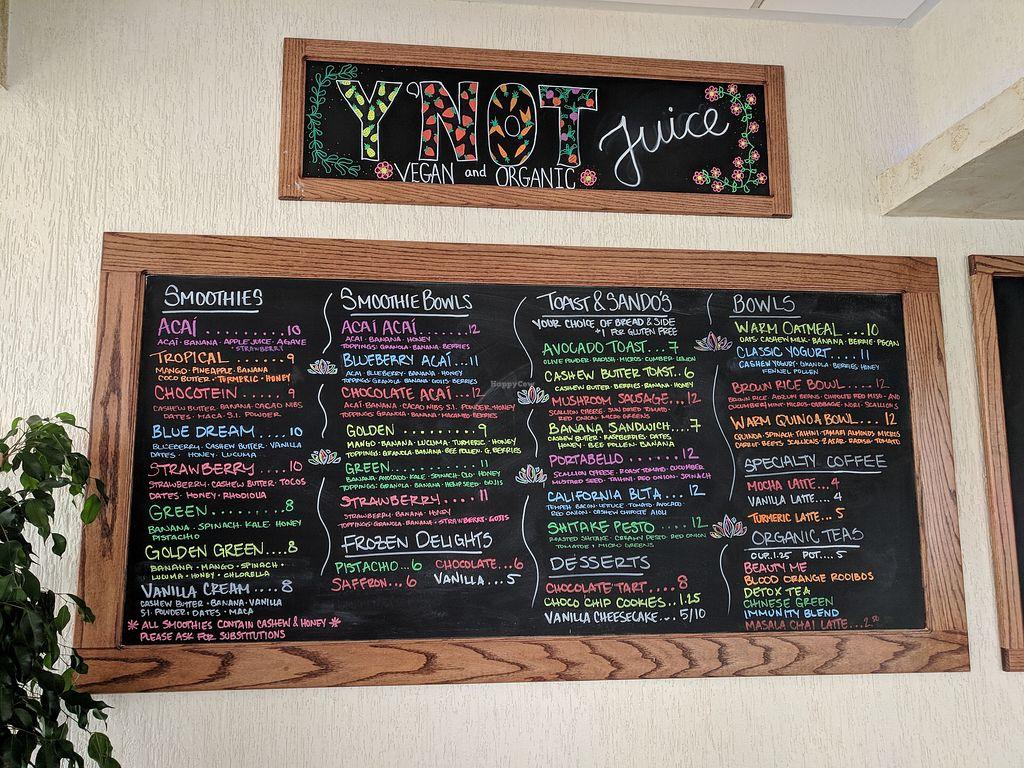 Y'NOT Juice
VEGAN and ORGANIC
SMOOTHIES
ACAÍ .......... 10
ACAI · BANANA · APPLE JUICE · AGAVE
· STRAWBERRY
TROPICAL .......... 9
MANGO · PINEAPPLE · BANANA
COCO BUTTER · TURMERIC · HONEY
CHOCOTEIN ..... 9
CASHEW BUTTER · BANANA · CACAO NIBS
DATES · MACA · S.I. POWDER
BLUE DREAM .... 10
BLUEBERRY · CASHEW BUTTER · VANILLA
DATES · HONEY · LUCUMA
STRAWBERRY ..... 10
STRAWBERRY · CASHEW BUTTER · TOCOS
DATES · HONEY · RHODIOLA
GREEN .......... 8
BANANA · SPINACH · KALE · HONEY
PISTACHIO
GOLDEN GREEN.... 8
BANANA · MANGO · SPINACH ·
LUCUMA · HONEY · CHLORELLA
VANILLA CREAM ... 8
CASHEW BUTTER · BANANA · VANILLA
S.I. POWDER · DATES · MACA
* ALL SMOOTHIES CONTAIN CASHEW & HONEY *
PLEASE ASK FOR SUBSTITUTIONS
SMOOTHIE BOWLS
ACAÍ ACAÍ ....... 12
ACAI · BANANA · HONEY
TOPPINGS: GRANOLA · BANANA · BERRIES
BLUEBERRY ACAÍ .... 11
ACAI · BLUEBERRY · BANANA · HONEY
TOPPINGS: GRANOLA · BANANA · GOJIS · BERRIES
CHOCOLATE ACAÍ .... 12
ACAI · BANANA · CACAO NIBS · S.I. POWDER · HONEY
TOPPINGS: GRANOLA · BANANA · MACA · BERRIES
GOLDEN .......... 9
MANGO · BANANA · LUCUMA · TURMERIC · HONEY
TOPPINGS: GRANOLA · BANANA · BEE POLLEN · G. BERRIES
GREEN .......... 11
BANANA · AVOCADO · KALE · SPINACH · HONEY
TOPPINGS: GRANOLA · BANANA · HEMP SEED · GOJIS
STRAWBERRY ...... 11
STRAWBERRY · BANANA · HONEY
TOPPINGS: GRANOLA · BANANA · STRAWBERRY · GOJIS
FROZEN DELIGHTS
PISTACHIO .. 6 CHOCOLATE .. 6
SAFFRON ... 6 VANILLA ... 5
TOAST & SANDO'S
YOUR CHOICE OF BREAD & SIDE
+1 FOR GLUTEN FREE
AVOCADO TOAST ... 7
OLIVE POWDER · RADISH · MICROS · CUMBER · LEMON
CASHEW BUTTER TOAST.. 6
CASHEW BUTTER · BERRIES · BANANA · HONEY
MUSHROOM SAUSAGE ... 12
SCALLION CHEESE · SUN DRIED TOMATO ·
RED ONION · MICRO GREENS
BANANA SANDWICH .... 7
CASHEW BUTTER · RASPBERRIES · DATES,
HONEY · BEE POLLEN · BANANA
PORTABELLO ...... 12
SCALLION CHEESE · ROAST TOMATO · CUCUMBER
MUSTARD · TAHINI · RED ONION · SPINACH
CALIFORNIA BLTA .. 12
TEMPEH BACON · LETTUCE · TOMATO · AVOCADO
RED ONION · CASHEW CHIPOTLE AIOLI
SHITAKE PESTO .... 12
ROASTED SHITAKE · CASHEW · DRIED RED ONION
TOMATOE · MICRO GREENS
DESSERTS
CHOCOLATE TART .... 8
CHOCO CHIP COOKIES .. 1.25
VANILLA CHEESECAKE ... 5/10
BOWLS
WARM OATMEAL ... 10
OATS · CASHEW MILK · BANANA · BERRIE · PECAN
CLASSIC YOGURT ... 11
CASHEW YOGURT · GRANOLA · BERRIES · HONEY
FENNEL POLLEN
BROWN RICE BOWL ... 12
BROWN RICE · ADZUKI BEANS · CHIPOTLE RED MISO · AND
CUCUMBER/MINT · MICROS · CABBAGE · NORI · SCALLIONS
WARM QUINOA BOWL ... 12
QUINOA · SPINACH · TAHINI · TAMARI ALMONDS MICROS
CARROT · BEETS · SCALLIONS · ZAATAR · RADISH · TOMATO
SPECIALTY COFFEE
MOCHA LATTE ... 4
VANILLA LATTE .... 4
TURMERIC LATTE... 5
ORGANIC TEAS
CUP.1.25 POT....5
BEAUTY ME
BLOOD ORANGE ROOIBOS
DETOX TEA
CHINESE GREEN
IMMUNITY BLEND
MASALA CHAI LATTE ...2.50
HappyCow